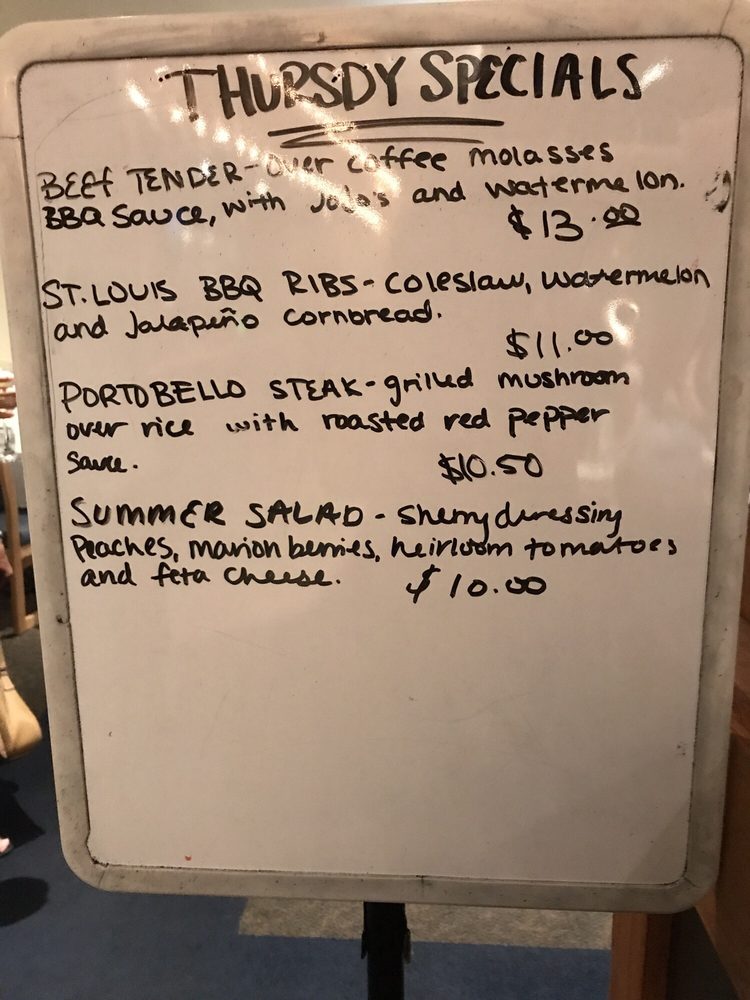 THURSDY SPECIALS
BEEF TENDER - over coffee molasses
BBQ Sauce, with JoJo's and watermelon.
$13.00
ST. LOUIS BBQ RIBS - coleslaw, watermelon
and Jalapeño cornbread.
$11.00
PORTOBELLO STEAK - grilled mushroom
over rice with roasted red pepper
sauce.
$10.50
SUMMER SALAD - Sherry dressing
Peaches, marion berries, heirloom tomatoes
and feta cheese.
$10.00